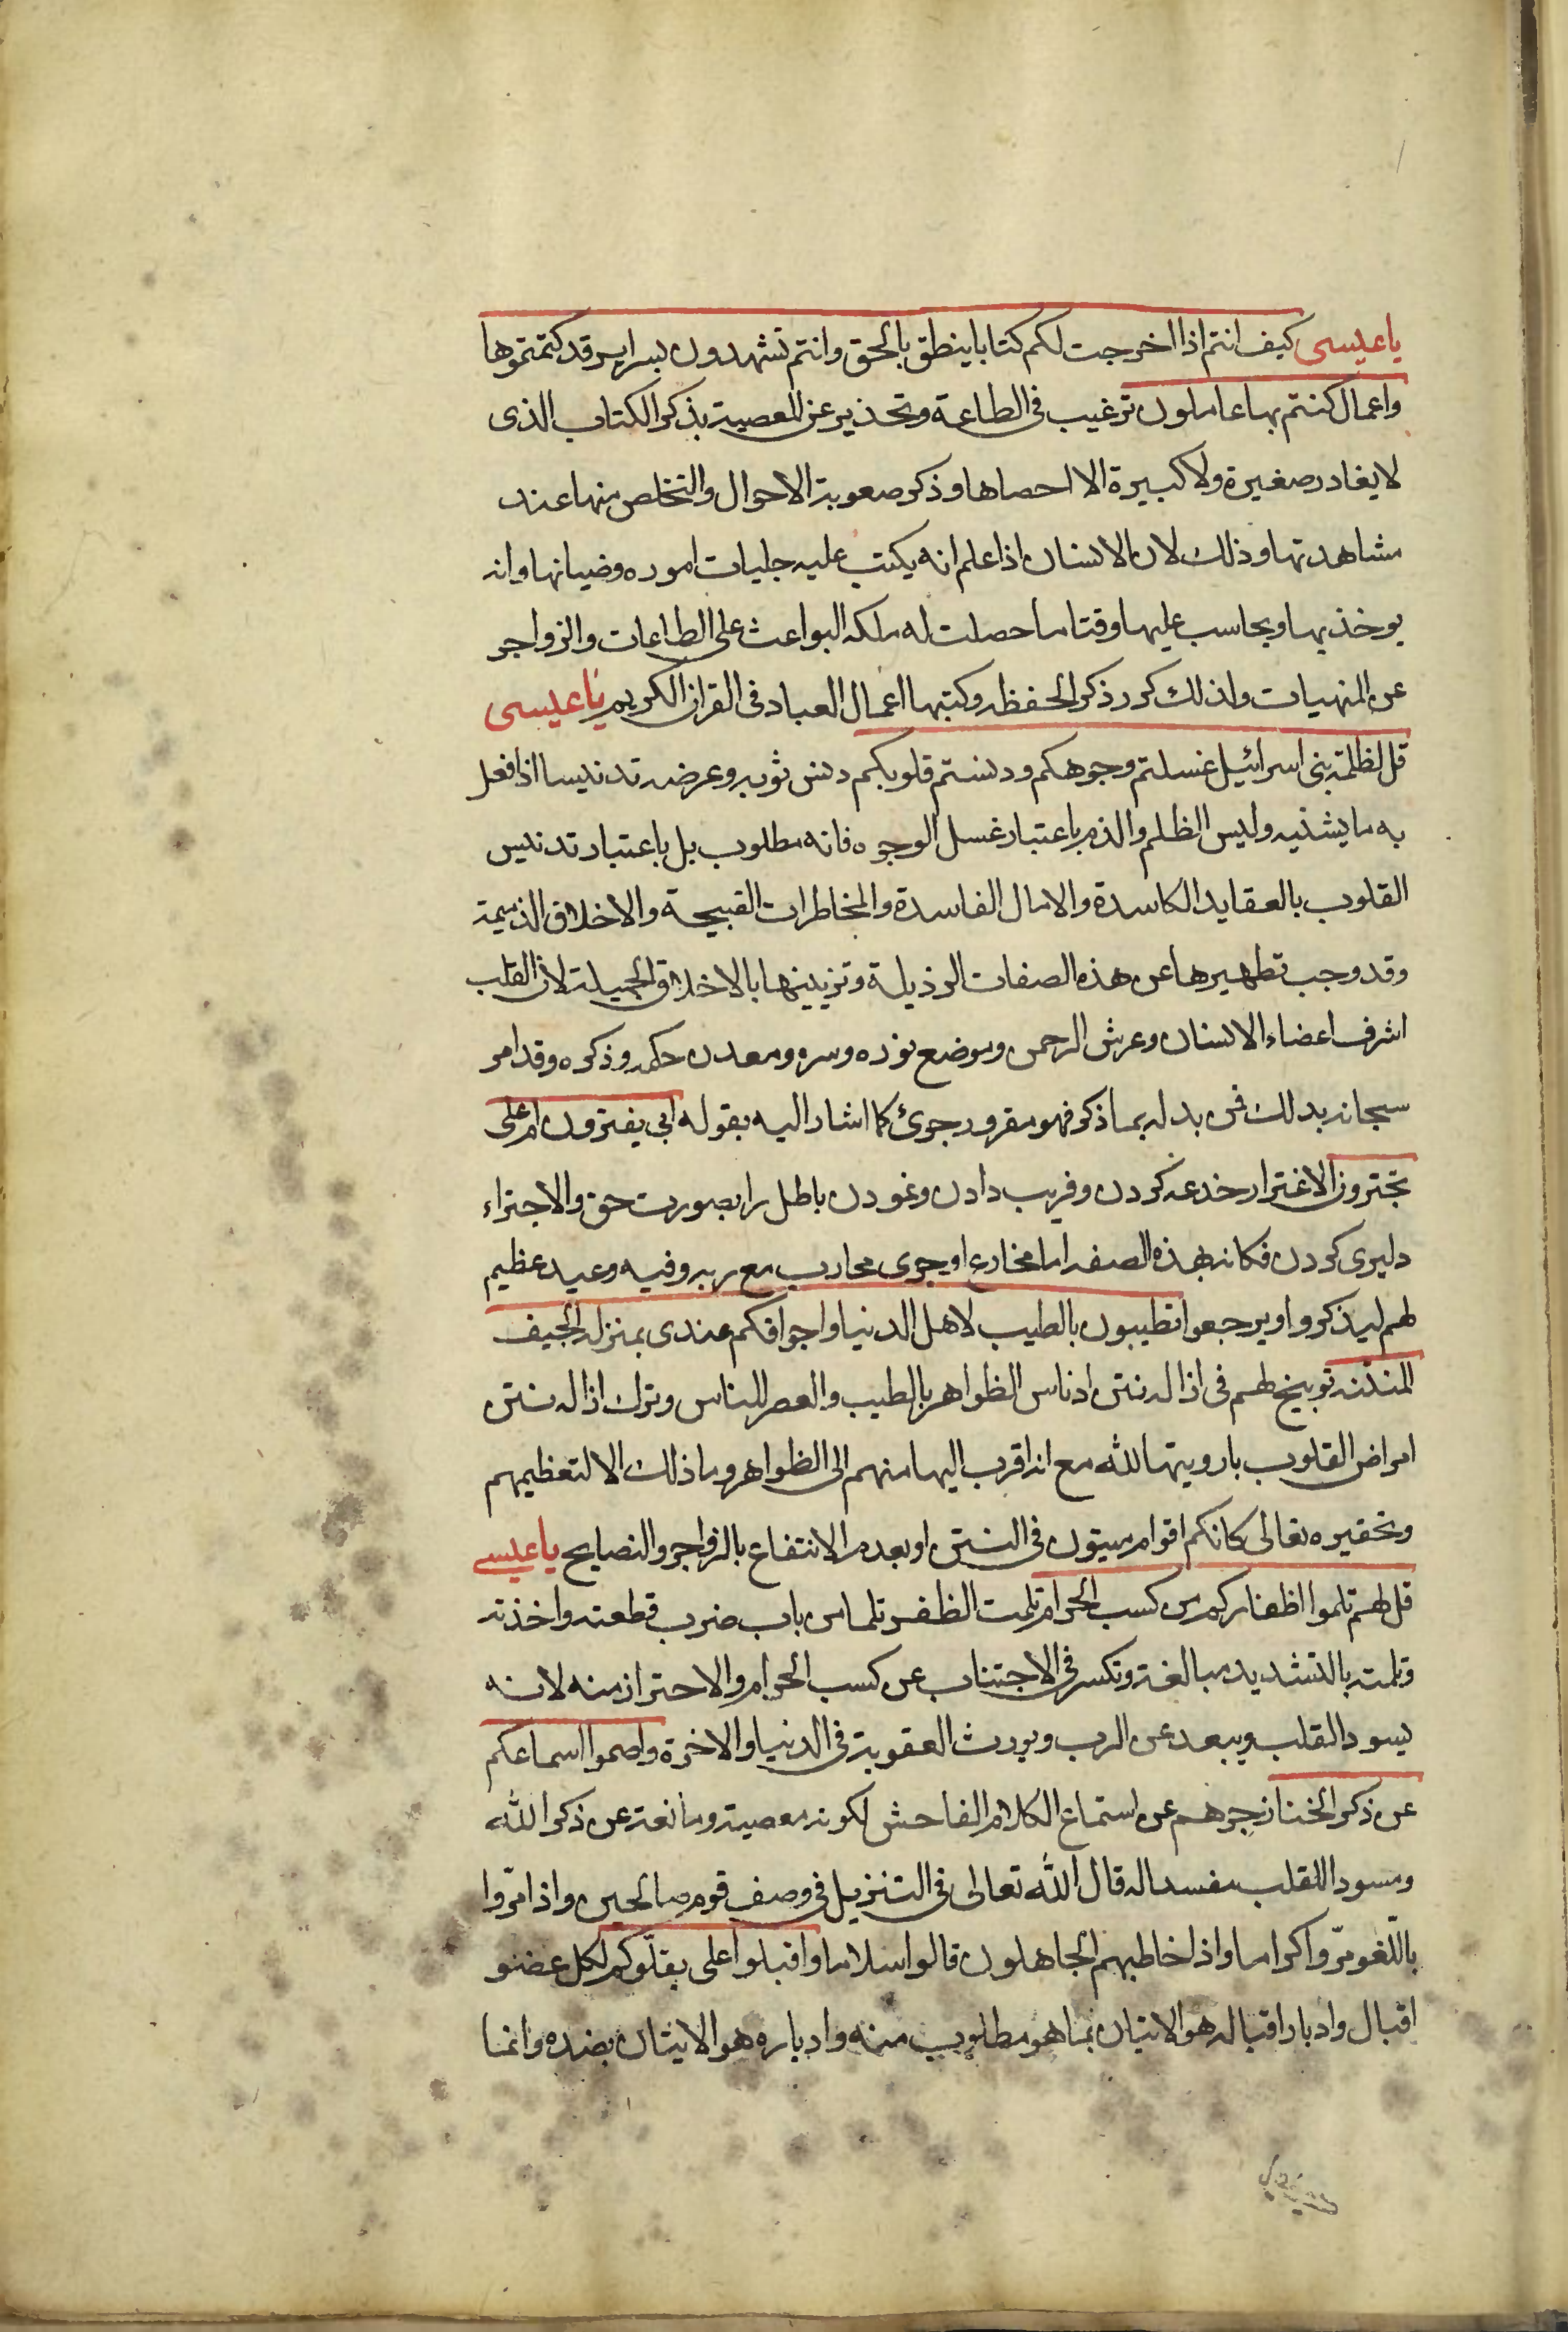 يا عيسى كيف انتم اذا اخرجت لكم كتابا ينطق بالحق وانتم تشهدون بسراير قد كتمتموها
واعمال كنتم بها عاملون ترغيب فى الطاعة وتحذير عن المعصية بذكر الكتاب الذى
لا يغادر صغيرة ولا كبيرة الا احصاها وذكر صعوبة الاحوال والتخلص منها عند
مشاهدتها وذلك لان الانسان اذا علم انه يكتب عليه جليات اموره وخفياتها وانه
يوخذ بها ويحاسب عليها وقتا ما حصلت له ملكه البواعث على الطاعات والزواجر
عن المنهيات ولذلك كرر ذكر الحفظه وكتبها اعمال العباد فى القران الكريم يا عيسى
قل لظلمة بنى اسرائيل غسلتم وجوهكم ودنستم قلوبكم دنس ثوبه وعرضه تدنيسا اذا فعل
به ما يشنيه وليس الظلم والذم باعتبار غسل الوجوه فانه مطلوب بل باعتبار تدنيس
القلوب بالعقايد الكاسدة والامال الفاسدة والمخاطرات القبيحة والاخلاق الذميمة
وقد وجب تطهيرها عن هذه الصفات الرذيلة وتزيينها بالاخلاق الجميلة لان القلب
اشرف اعضاء الانسان وعرش الرحمن وموضع نوره وسره ومعدن حكمه وذكره وقد امر
سبحانه بذلك فمن بدله بما ذكر فهو مقرور جرئ كما اشار اليه بقوله ابى يفترون ام على
تجترون الاغترار خدعه كردن وفريب دادن ونمودن باطل را بصورت حق والاجتراء
دليرى كردن فكانه بهذه الصفه اما مخادع او جرى محارب مع ربه وفيه وعيد عظيم
لهم ليذكروا ويرجعوا تطيبون بالطيب لاهل الدنيا واجوافكم عندى بمنزلة الجيف
المنتنه توبيخ لهم فى ازاله نتن ادناس الظواهر بالطيب والعصر للناس وترك ازاله نتن
امراض القلوب بارويتها لله مع انه اقرب اليها منهم الى الظواهر وما ذلك الا لتعظيمهم
وتحقيره تعالى كانكم اقوام ميتون فى النتن او بعدم الانتفاع بالزواجر والنصايح يا عيسى
قل لهم قلموا اظفاركم من كسب الحرام قلمت الظفر قلما من باب ضرب قطعته واخذته
وقلمته بالتشديد مبالغة وتكسر فى الاجتناب عن كسب الحرام والاحتراز منه لانه
يسود القلب ويبعد عن الرب ويورث العقوبة فى الدنيا والاخرة واصموا اسماعكم
عن ذكر الخنا زجرهم عن استماع الكلام الفاحش لكونه معصية ومانعة عن ذكر الله
ومسود اللقلب مفسدا له قال الله تعالى فى التنزيل فى وصف قوم صالحين واذا مرّوا
باللّغو مرّوا كراما واذا خاطبهم الجاهلون قالوا سلاما واقبلوا على بقلّوبكم لكل عضو
اقبال وادبار اقباله هو الاتيان بما هو مطلوب منه وادباره هو الايتان بضده وانما